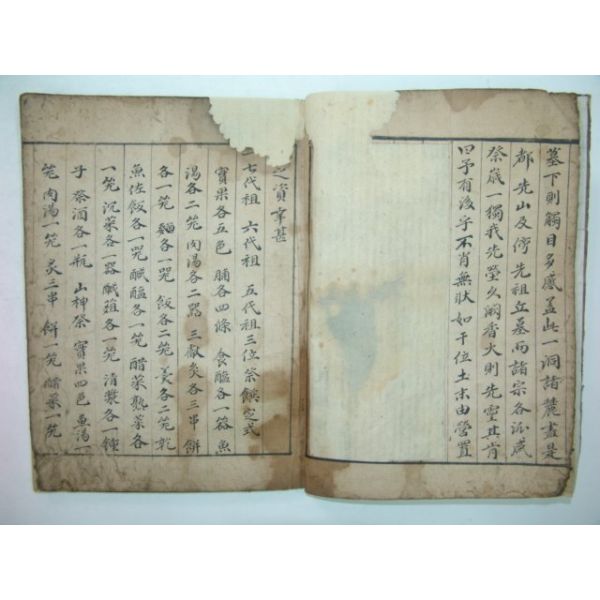 墓下則觸目多感蓋此一洞諸麓盡是
都先山及傍先祖丘墓而諸宗各派咸
祭歲一獨我先塋久闕香火則先靈其肯
曰予有後乎不肖無狀如干位土末由營置
之資幸甚
七代祖 六代祖 五代祖三位祭饌定式
實果各五色 脯各四條 食醢各一器 魚
湯各二笎 肉湯各二器 三獻炙各三串 餠
各一笎 麵各一器 飯各二笎 羹各二笎 乾
魚佐飯各一器 醎醢各一笎 醋菜熟菜各
一笎 沉菜各一器 醎薤各一笎 清醬各一鍾
子 祭酒各一瓶 山神祭 實果四色 魚湯一
笎 肉湯一笎 炙三串 餠一笎 醋菜一笎